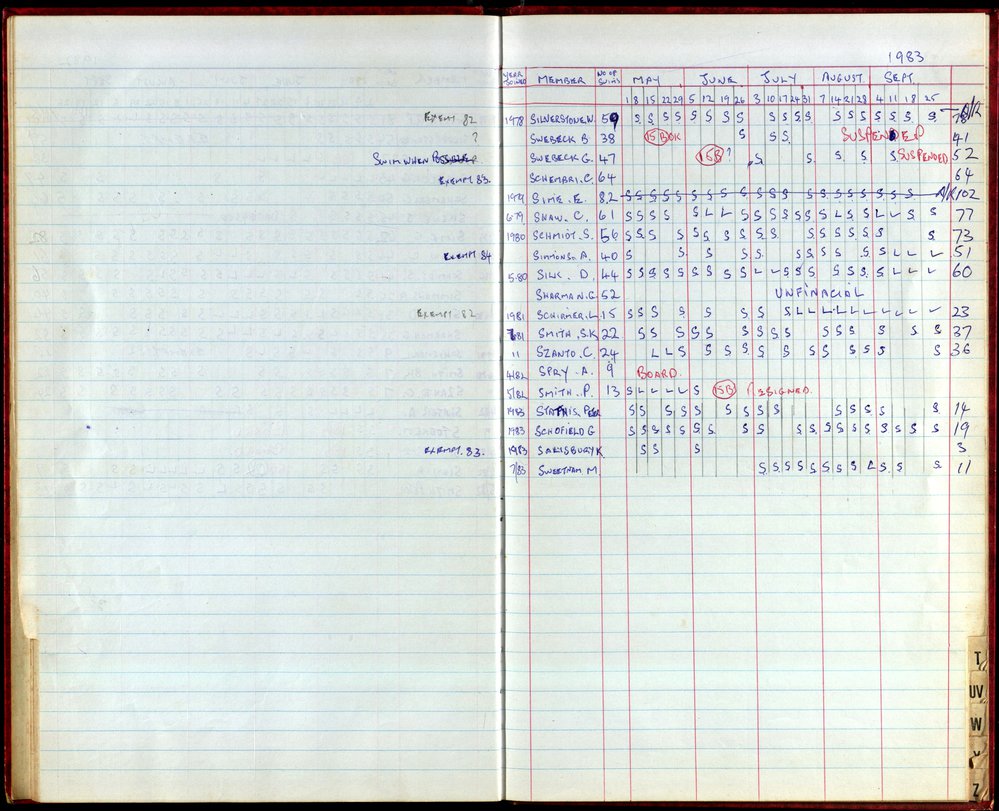 1983
YEAR JOINED MEMBER NO OF SWIMS MAY JUNE JULY AUGUST SEPT.
1 8 15 22 29 5 12 19 26 3 10 17 24 31 7 14 21 28 4 11 18 25
EXEMPT 82 1978 SILVERSTONE.W. 59 S S S S S S S S S S S S S S S S S S S 78
? SWEBECK B 38 15 B OK S S S SUSPENDED 41
SWIM WHEN SWEBECK G. 47 15B ? S S S S S SUSPENDED 52
EXEMPT 83. SCHEMBRI.C. 64 64
1979 SIME . E. 82 S S S S S S S S S S S S S S S S S S S S A/R 102
6/79 SHAW. C. 61 S S S S S L L S S S S S S S L S S L L S S 77
1980 SCHMIDT. S. 56 S S S S S S S S S S S S S S S S 73
EXEMPT 84 SIMMONS. A. 40 S S S S S S S S S S L L L 51
5.80 SILK . D. 44 S S S S S S S S S L L S S S S S S S L L L 60
SHARMAN.G. 52 UNFINACIAL
EXEMPT 82 1981 SCHIRMER.L. 15 S S S S S S S S L L L L L L L L L L 23
7/81 SMITH .S.K 22 S S S S S S S S S S S S S S S 37
11 SZANTO. C. 24 L L S S S S S S S S S S S S 36
4/82 SPRY . A. 9 BOARD.
5/82 SMITH . P. 13 S L L L L S 15B RESIGNED.
1983 STATHIS. PETER S S S S S S S S S S S S S S 14
1983 SCHOFIELD G S S S S S S S S S S S S S S S S S S S 19
EXEMPT. 83. 1983 SALISBURY K. S S S 3
7/83 SWEETNAM M. S S S S S S S S L S S S 11
T
UV
W
Y
Z